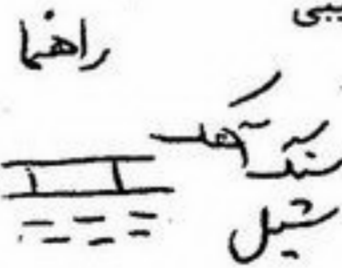 راهنما
سنگ آهک
شیل